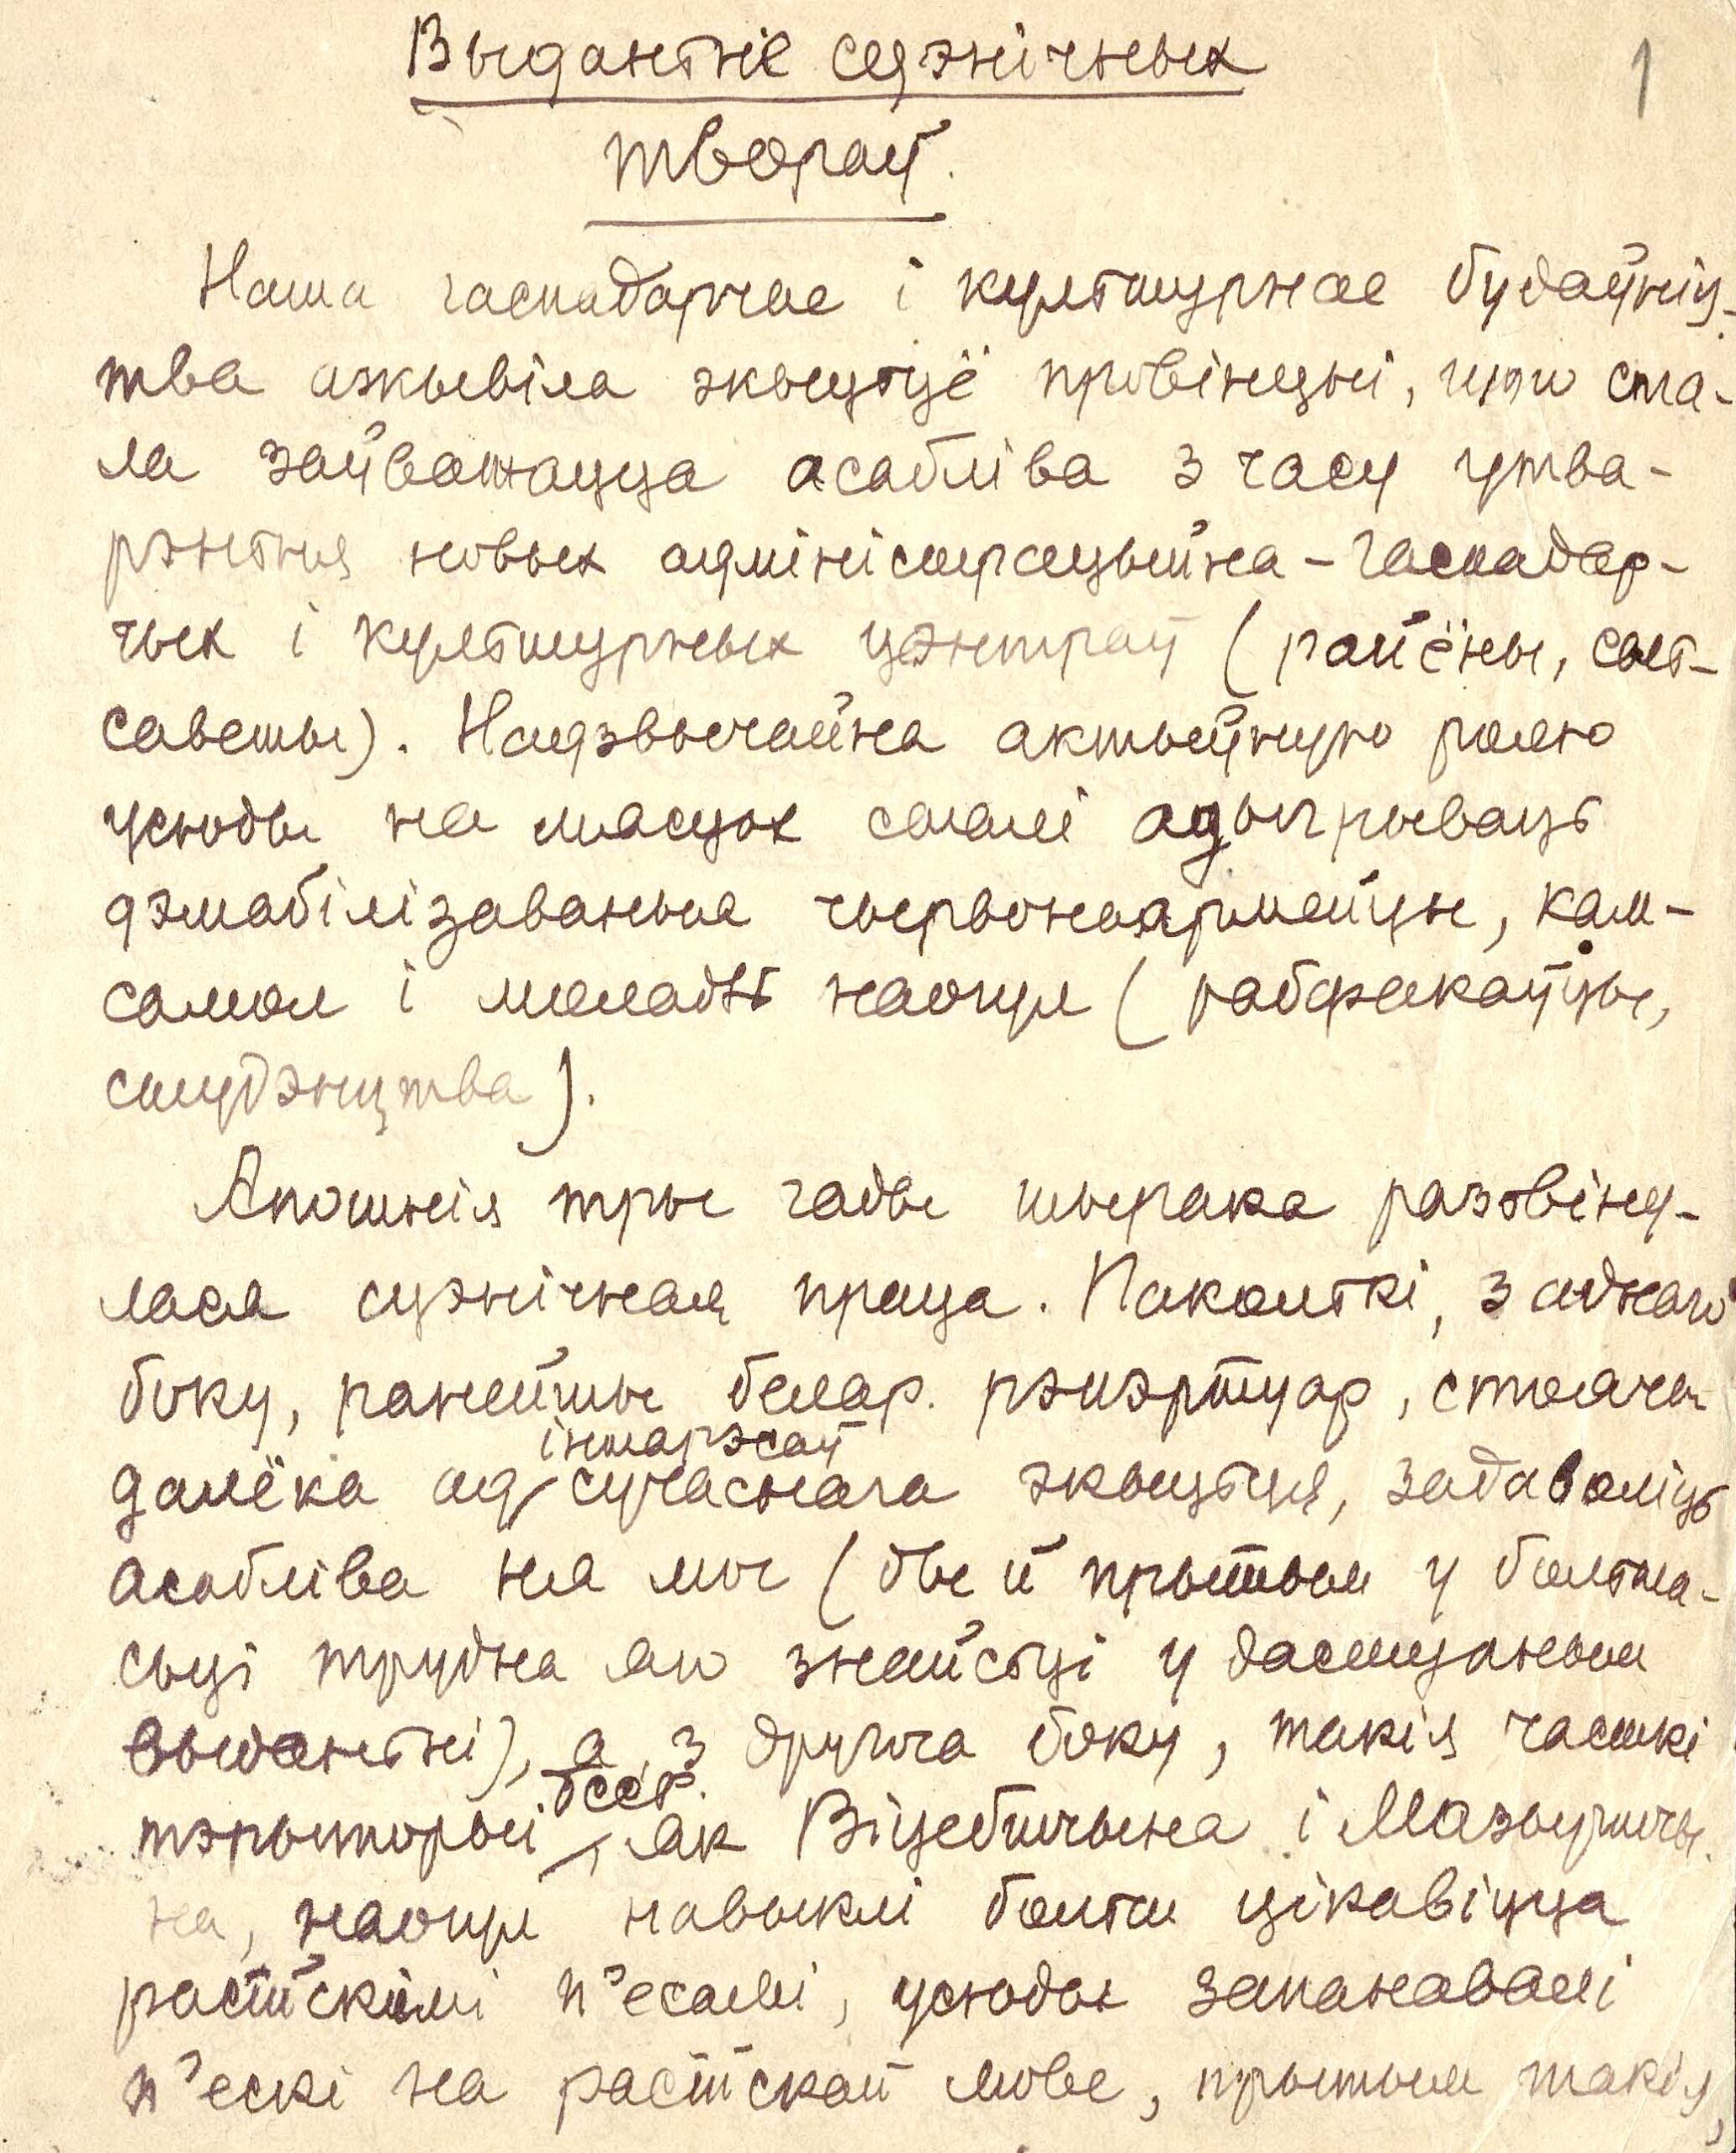 Выданьне сцэнічных
1
твораў.
Наша гаспадарчае і культурнае будаўніц-
тва ажывіла жыцьцё правінцыі, што ста-
ла заўважацца асабліва з часу утва-
рэньня новых адміністрацыйна-гаспадар-
чых і культурных цэнтраў (раёны, сель-
саветы). Надзвычайна актыўную ролю
усюды на мясцох сталі адыгрываць
дэмабілізаваныя чырвонаармейцы, кам-
самол і моладзь наогул (рабфакаўцы,
студэнцтва).
Апошнія тры гады шырака разьвіну-
лася сцэнічная праца. Паколькі, з аднаго
боку, ранейшы белар. рэпэртуар, стоячы
інтарэсаў
далёка ад сучаснага жыцьця, задаволіць
асабліва ня мог (ды й прытым у больша-
сьці трудна яго знайсьці у дасканалым
выданьні), а з другога боку, такія часткі
БССР.
тэрыторыі, як Віцебшчына і Мазыршчы-
на, наогул навыклі больш цікавіцца
расійскімі п'есамі, усюды запанавалі
п'ескі на расійскай мове, прытым такія,